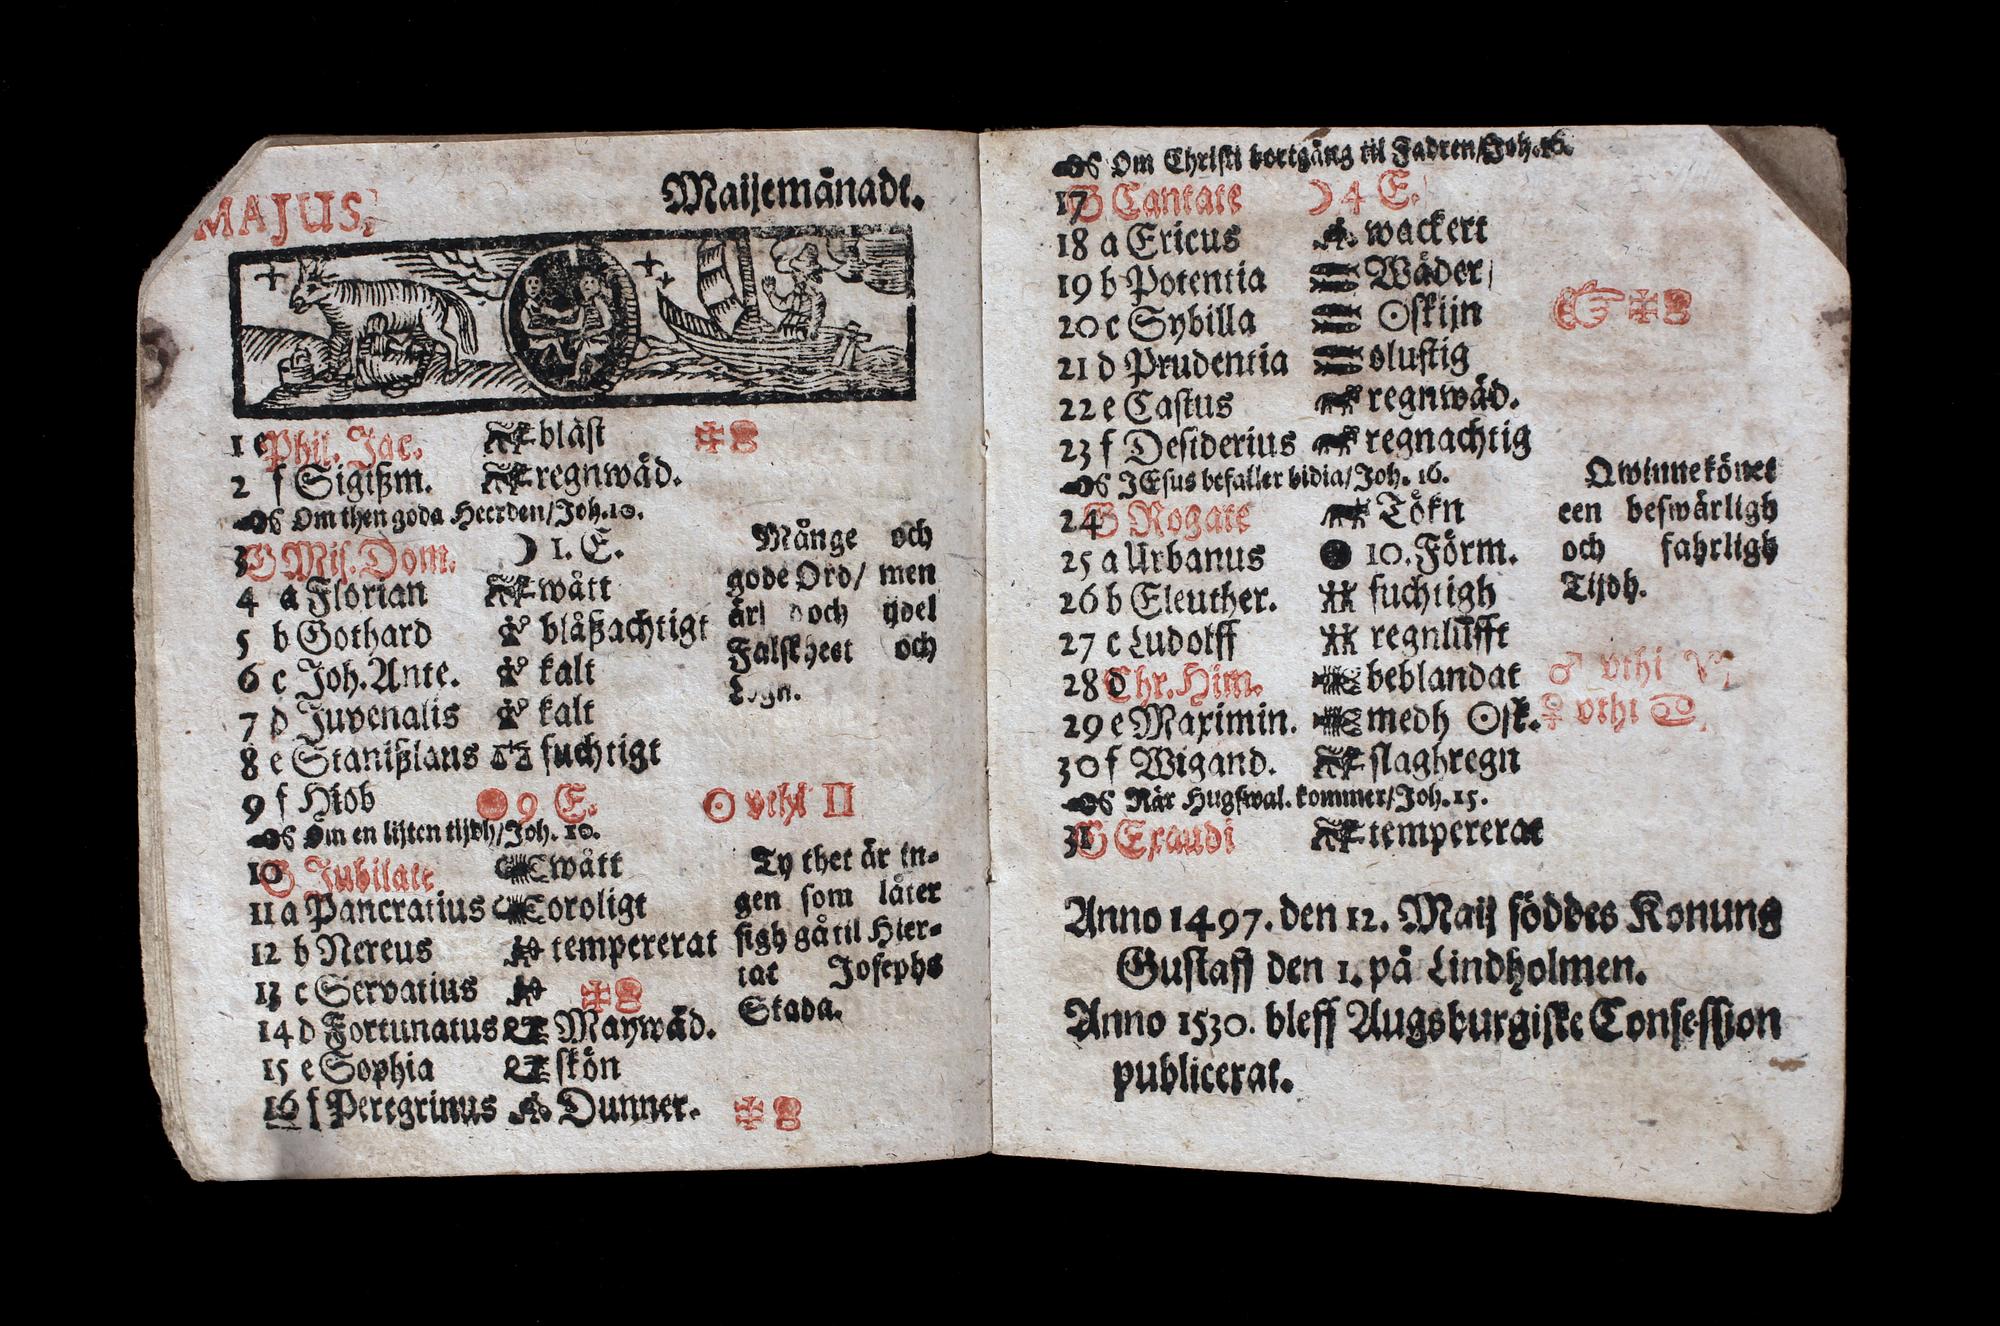 MAJUS,
Maijemånadt.
1 e Phil. Jac. blåst
2 f Sigißm. regnwäd.
Om then goda Heerden/Joh.10.
3 G Mis. Dom. ☽ 1. E.
4 a Florian wått
5 b Gothard blåßachtigt
6 c Joh. Ante. kalt
7 d Juvenalis kalt
8 e Stanißlaus fuchtigt
9 f Hiob 9 E. ☉ vthi II
Om en lijten tijdh/Joh. 16.
10 G Jubilate wått
11 a Pancratius oroligt
12 b Nereus tempererat
13 c Servatius
14 d Fortunatus Maywäd.
15 e Sophia skön
16 f Peregrinus Dunner.
Månge och
gode Ord/ men
är doch ijdel
Falskheet och
Lögn.
Ty thet är in-
gen som låter
sigh gå til Hier-
tat Josephs
Skada.
Om Christi bortgång til Fadren/Joh.16.
17 G Cantate ☽ 4 E.
18 a Ericus wackert
19 b Potentia Wäder/
20 c Sybilla ☉skijn
21 d Prudentia olustig
22 e Castus regnwäd.
23 f Desiderius regnachtig
JEsus befaller bidia/Joh. 16.
24 G Rogate Tökn
25 a Urbanus ● 10. Förm.
26 b Eleuther. fuchtigh
27 c Ludolff regnlufft
28 d Chr. Him. beblandat ♂ vthi ♈
29 e Maximin. medh ☉sk. ♀ vthi ♋
30 f Wigand. slaghregn
När Hugswal. kommer/Joh. 15.
31 G Exaudi tempererat
Qwinnekönet
een beswärligh
och fahrligh
Tijdh.
Anno 1497. den 12. Maij föddes Konung
Gustaff den 1. på Lindholmen.
Anno 1530. bleff Augsburgiske Confession
publicerat.